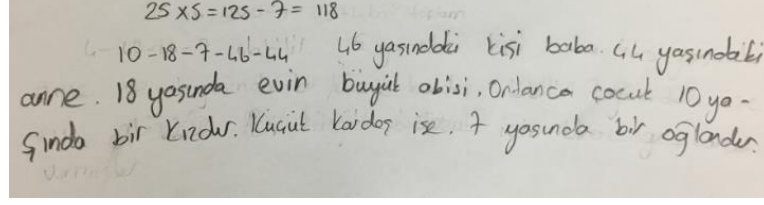 25 x 5 = 125 - 7 = 118
10 - 18 - 7 - 46 - 44 46 yaşındaki kişi baba. 44 yaşındaki
anne. 18 yaşında evin büyük abisi. Ortanca çocuk 10 ya-
şında bir kızdır. Küçük kardeş ise. 7 yaşında bir oğlandır.